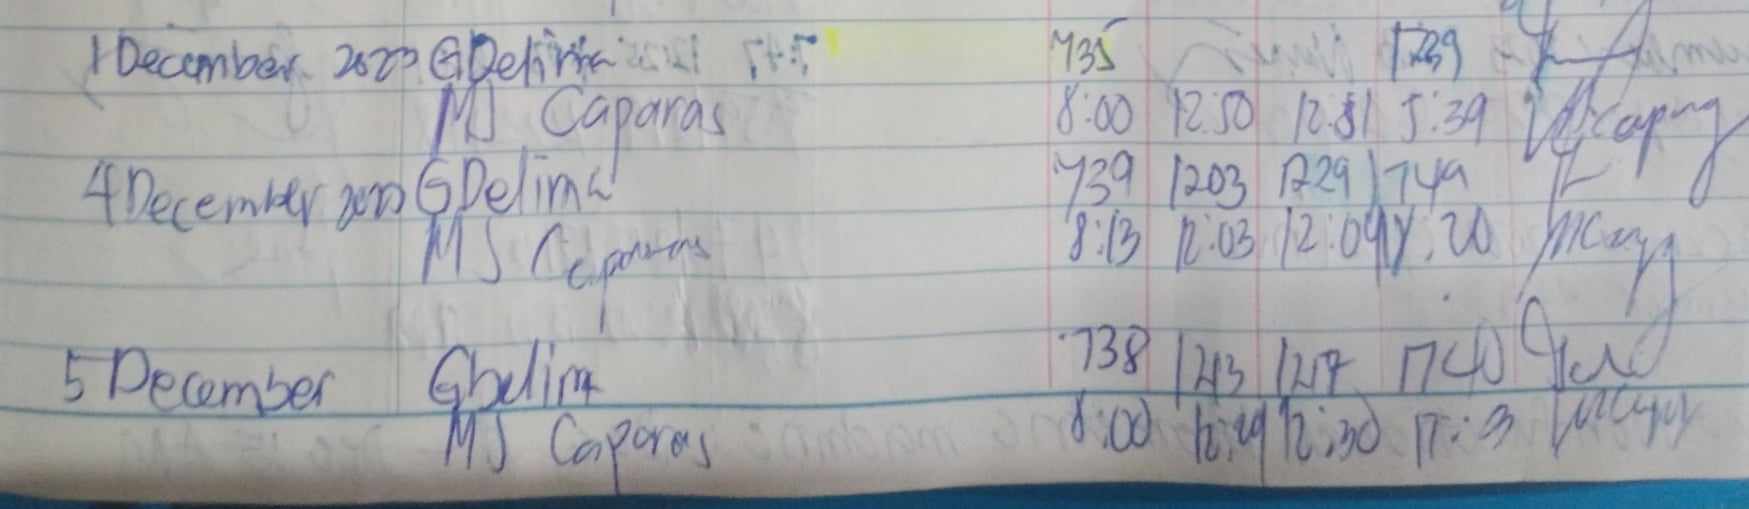 1 December 2023 GDelima 735 1239
MJ Caparas 8:00 12:50 12:51 5:39
4 December 2023 GDelima 739 1203 1229 1749
MJ Caparas 8:13 12:03 12:04 17:20
5 December GDelima 738 1213 1217 1740
MJ Caparas 8:00 12:29 12:30 17:3